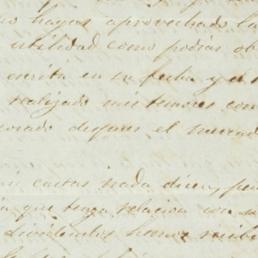 no hayas aprovechado la
utilidad como podias ob
escrita en su fecha y el
realizado mis temores con
despues el
cartas nada dice, pe
que tenga relacion con su
hemos recibi